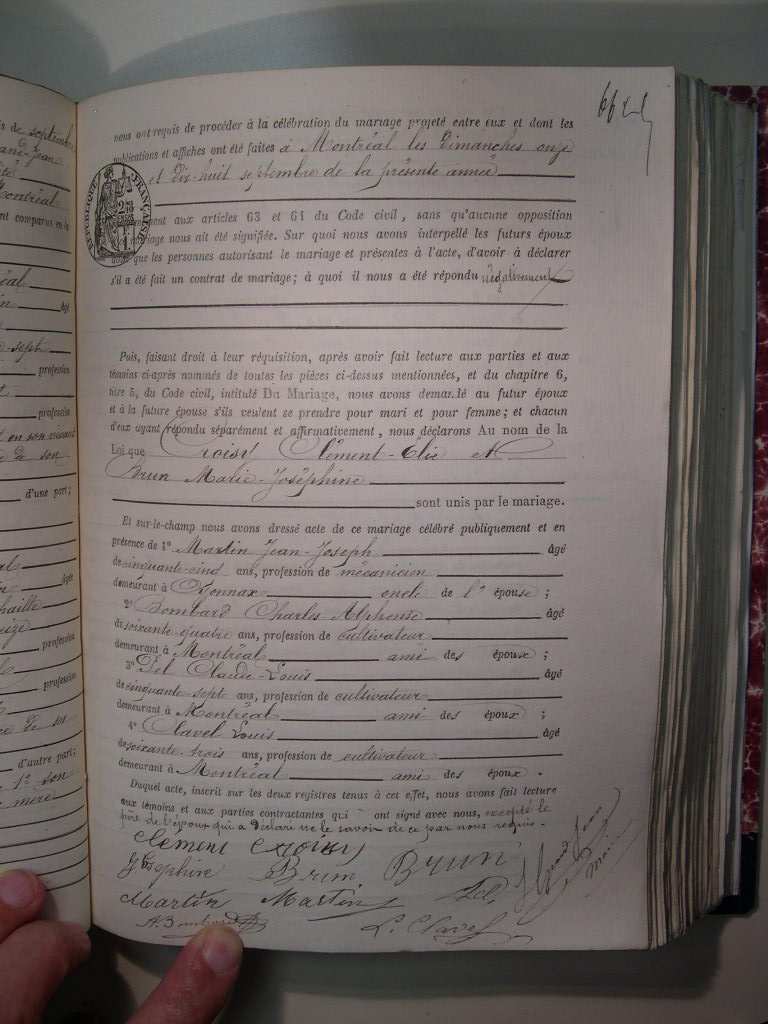 nous ont requis de procéder à la célébration du mariage projeté entre eux et dont les
publications et affiches ont été faites à Montréal les Dimanches onze
et dix-huit septembre de la présente année
RÉPUBLIQUE FRANÇAISE
aux articles 63 et 64 du Code civil, sans qu'aucune opposition
mariage nous ait été signifiée. Sur quoi nous avons interpellé les futurs époux
que les personnes autorisant le mariage et présentes à l'acte, d'avoir à déclarer
s'il a été fait un contrat de mariage; à quoi il nous a été répondu négativement
Puis, faisant droit à leur réquisition, après avoir fait lecture aux parties et aux
témoins ci-après nommés de toutes les pièces ci-dessus mentionnées, et du chapitre 6,
titre 5, du Code civil, intitulé Du Mariage, nous avons demandé au futur époux
et à la future épouse s'ils veulent se prendre pour mari et pour femme; et chacun
d'eux ayant répondu séparément et affirmativement, nous déclarons Au nom de la
Loi que Croisy Clément-Élie et
Brun Marie-Joséphine
sont unis par le mariage.
Et sur-le-champ nous avons dressé acte de ce mariage célébré publiquement et en
présence de 1° Martin Jean-Joseph âgé
de cinquante-cinq ans, profession de mécanicien
demeurant à Oyonnax oncle de l'épouse;
2° Bombard Charles Alphonse âgé
de soixante-quatre ans, profession de cultivateur
demeurant à Montréal ami des époux;
3° Pel Claude-Louis âgé
de cinquante-sept ans, profession de cultivateur
demeurant à Montréal ami des époux;
4° Clavel Louis âgé
de soixante-trois ans, profession de cultivateur
demeurant à Montréal ami des époux.
Duquel acte, inscrit sur les deux registres tenus à cet effet, nous avons fait lecture
aux témoins et aux parties contractantes qui ont signé avec nous, excepté le
père de l'époux qui a déclaré ne le savoir de ce par nous requis.
Clément Croisy
Joséphine Brun Brun
Martin Martin Pel
A. Bombard L. Clavel
Maire
de septembre
Montréal
comparus en la
âgé
profession
profession
d'une part;
âgé
profession
profession
d'autre part;
1° son
mère